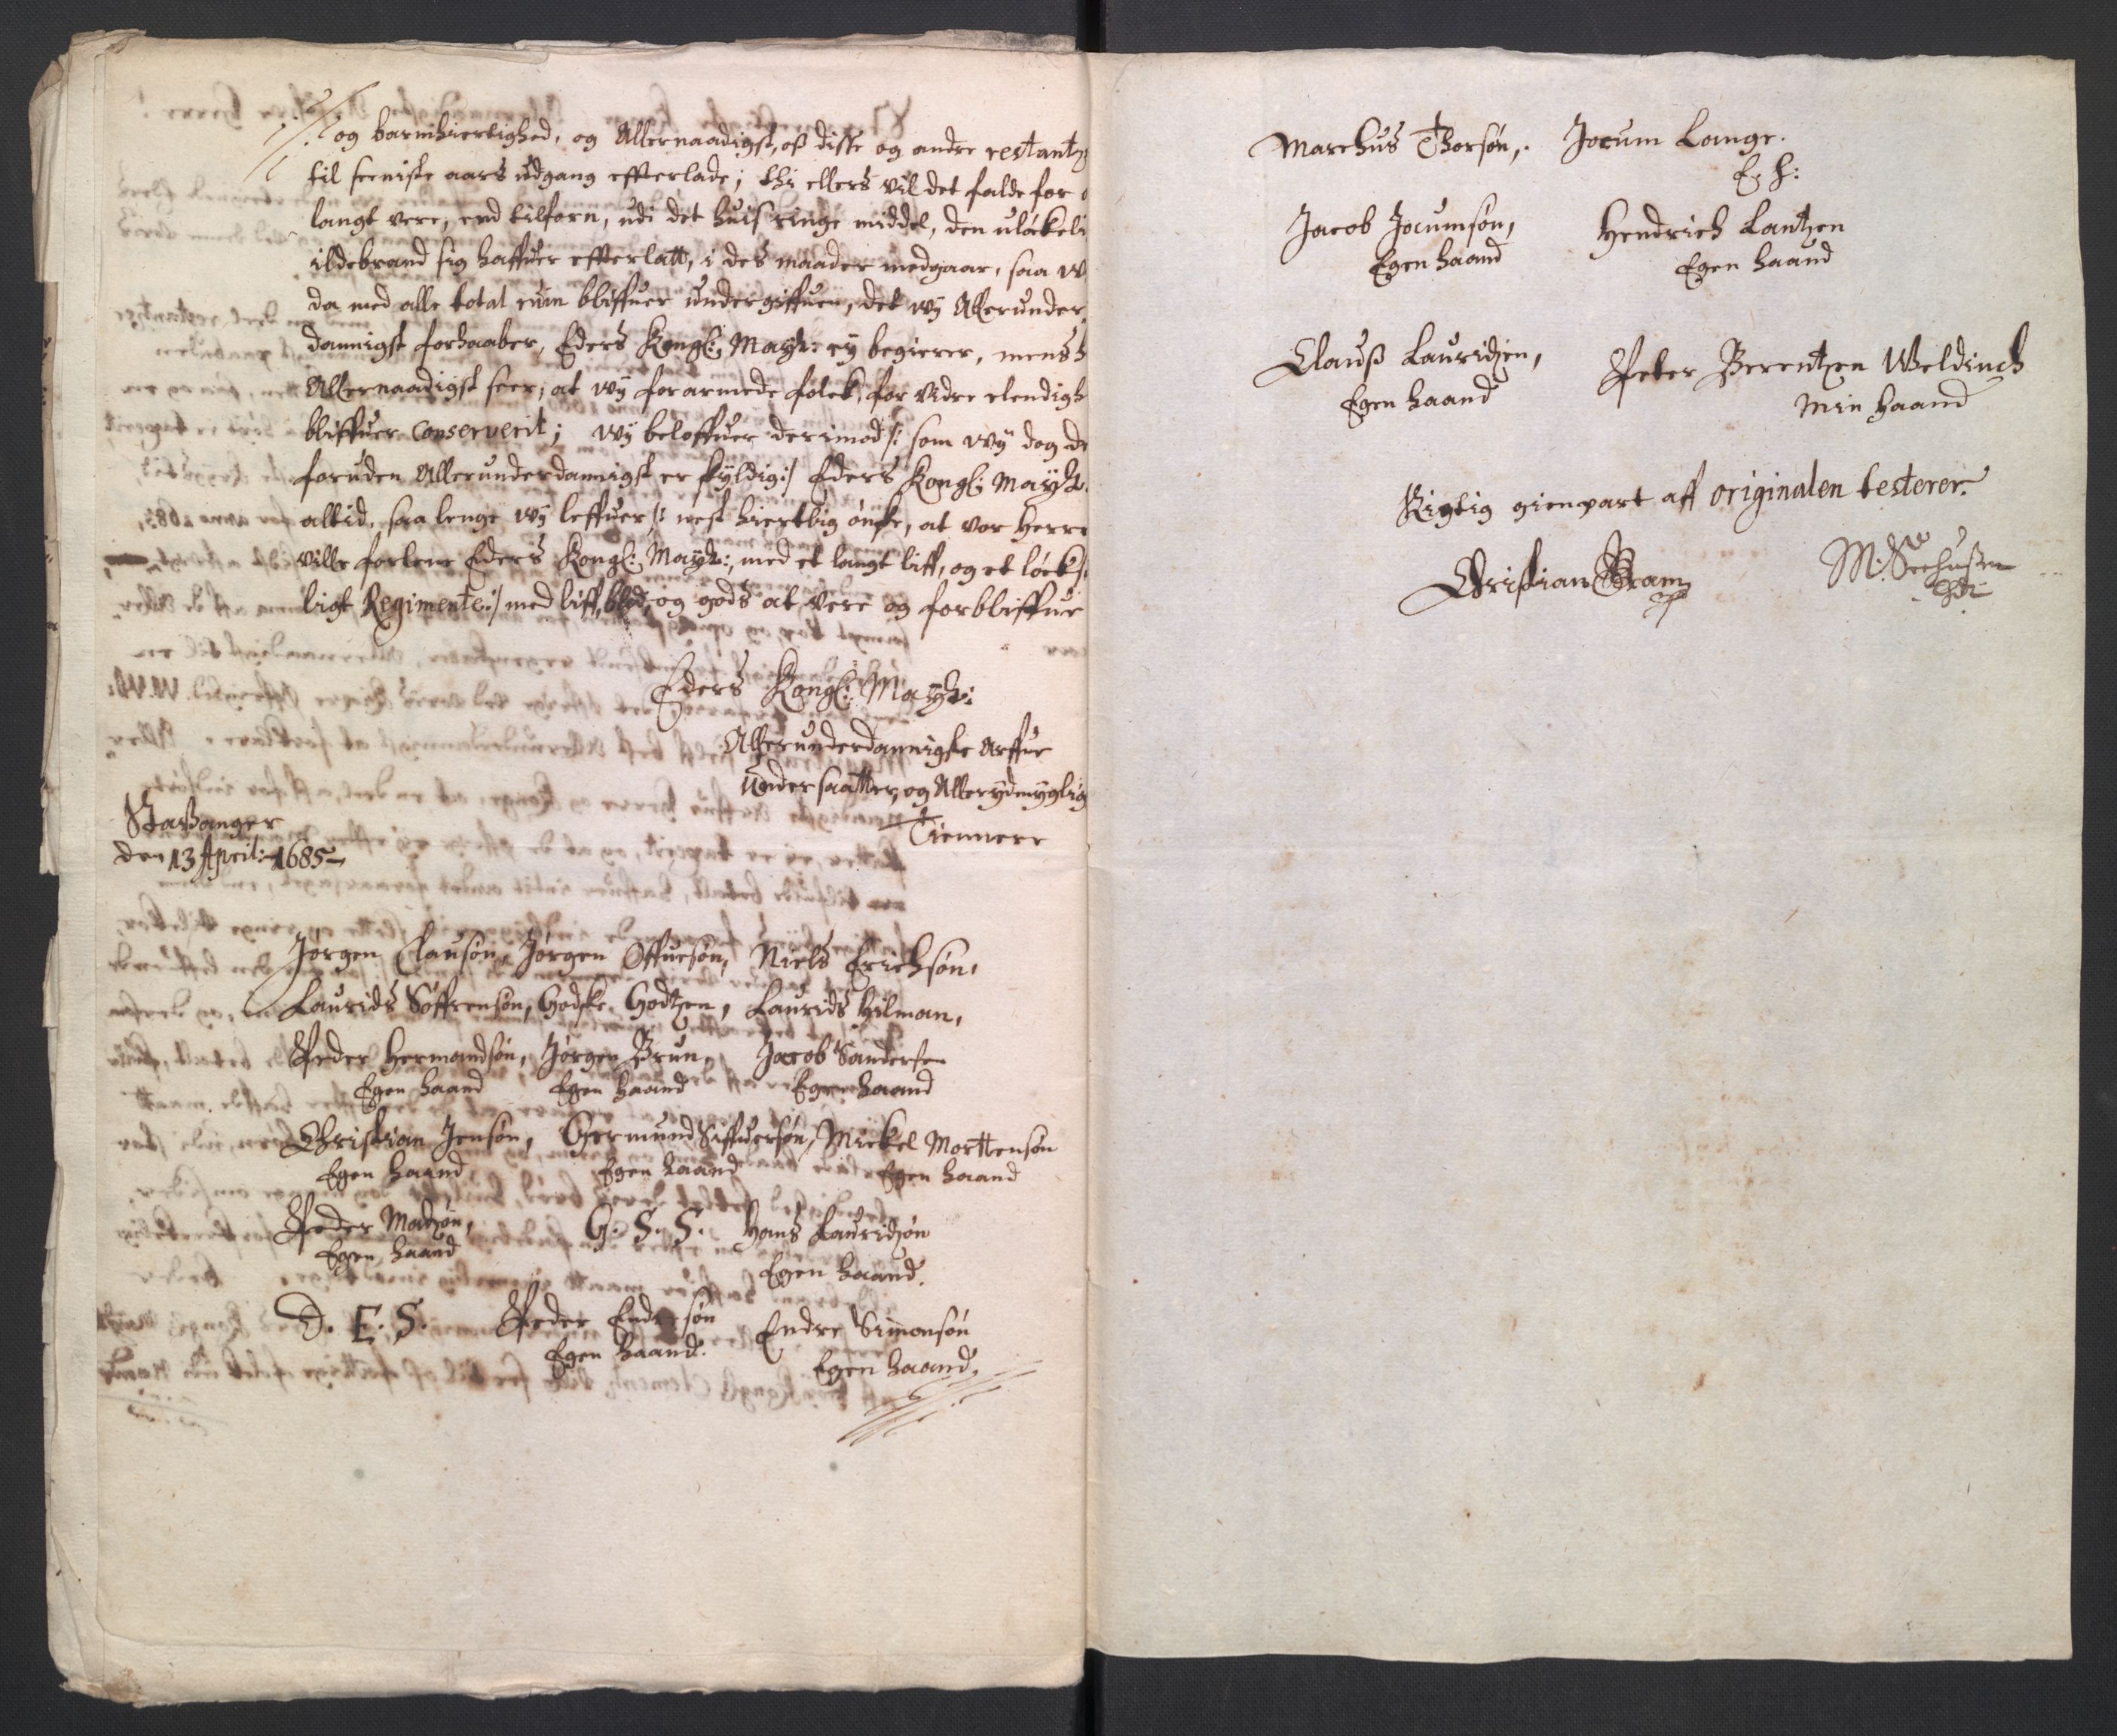 og barmhiertighed, og Allernaadigst, oß disse og andre restantz
til seeniste aars udgang effterlade; thi ellers vil det falde for
langt vere, end tilforn, udi det huis ringe middel, den ulöckeli
ildebrand sig haffuer effterlatt, i des maader medgaar, saa w
da med alle total ruin bliffuer undergiffuen, det wÿ Allerunder
dannigst forhaaber, Eders Kongl: Mayt: eÿ begierer, mens
Allernaadigst seer, at wÿ forarmede folck, for vidre elendigh
bliffuer conserverit; wÿ beloffuer derimod /: som wÿ dog de
foruden Allerunderdannigst er skÿldig :/ Eders Kongl: Mayt.
altid, saa lenge wÿ leffuer /: nest hiertlig önske, at vor Herre
ville forlene Eders Kongl: Mayt:, med et langt liff, og et löck
ligt Regimente :/ med liff, blod, og gods at vere og forbliffue
Eders Kongl: Mayt:
Allerunderdannigste Arffue
Undersaatter, og Allerydmygligs
Tiennere
Stavanger
den 13 April: 1685
Jörgen Clausön, Jörgen Offuesön, Niels Erichsön,
Laurids Söffrensön, Godske Godtzen, Laurids Hilman,
Peder Hermandsön, Jörgen Brun, Jacob Sandersen
Egen haand Egen haand Egen haand
Christian Jensön, Germund Siffuersön, Mickel Morttensön
Egen haand Egen haand Egen haand
Peder Madzön, G. S. S. Hans Lauridzön
Egen haand Egen haand.
D. E. S. Peder Endresön Endre Simonsön
Egen haand. Egen haand
Marchus Thorsön, Jocum Lange.
E. h:
Jacob Jocumsön, Hendrich Lantzen
Egen haand Egen haand
Clauß Lauridzen, Peter Berentzen Weldinch
Egen haand Min haand
Rigtig gienpart aff originalen testerer
Christian Bram M: Seehusen